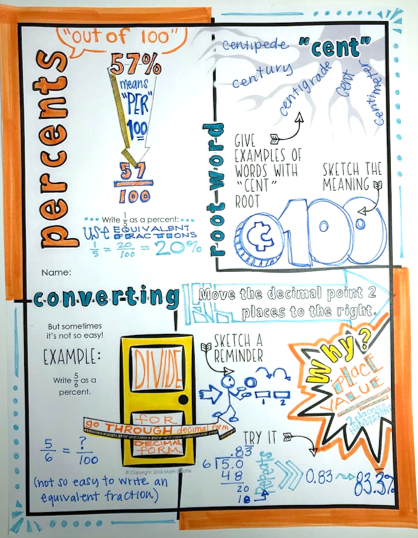 "out of 100"
percents
57%
means
"PER"
100
57
100
Write 1/5 as a percent:
USE EQUIVALENT
FRACTIONS
1/5 = 20/100 = 20%
Name:
root-word
"cent"
centipede
century
centigrade
cent
centimeter
GIVE
EXAMPLES OF
WORDS WITH
"CENT"
ROOT
SKETCH THE
MEANING
¢100
converting
Move the decimal point 2
places to the right.
But sometimes
it's not so easy!
EXAMPLE:
Write 5/6 as a
percent.
5/6 = ?/100
(not so easy to write an
equivalent fraction)
DIVIDE
FOR
go THROUGH decimal form
DECIMAL
FORM
SKETCH A
REMINDER
Why?
PLACE
VALUE
TRY IT
.83
6 5.0
48
20
18
repeats
0.83
83.3%